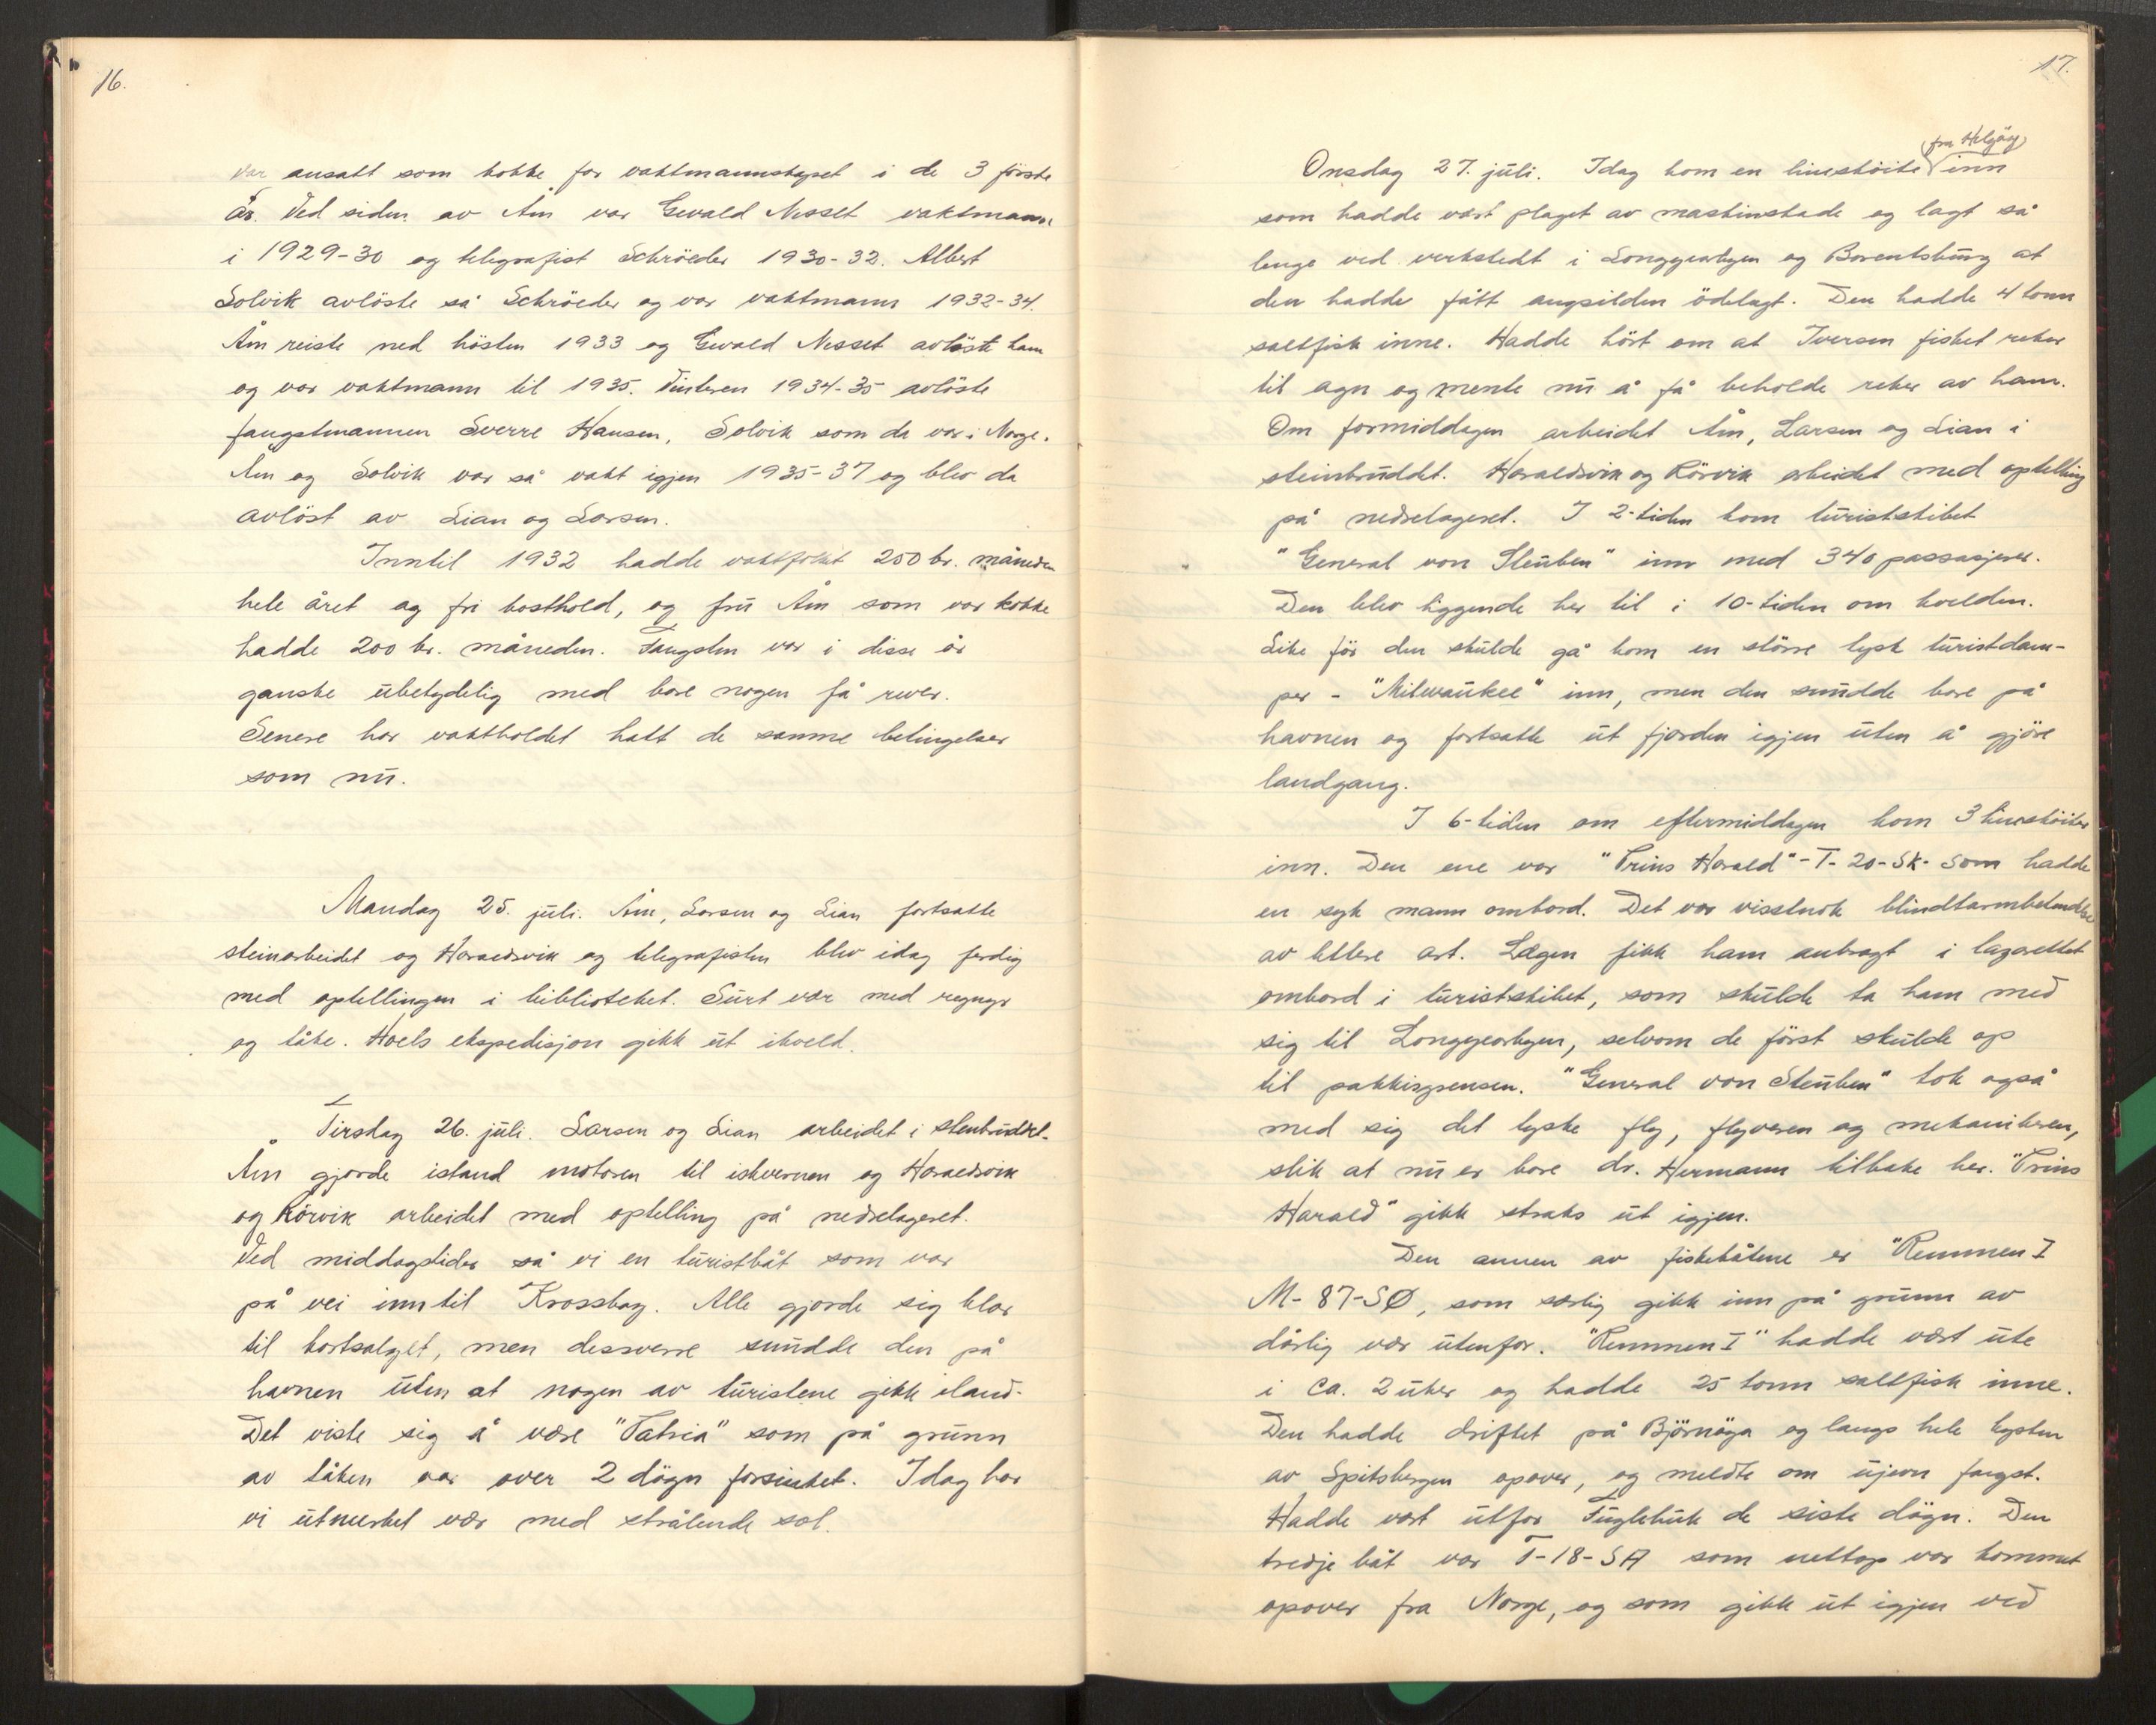 16.
var ansatt som kokke for vaktmannskapet i de 3 förste
år. Ved siden av Åm var Gevald Nesset vaktmann
i 1929-30 og telegrafist Schröeder 1930-32. Albert
Solvik avlöste så Schröeder og var vaktmann 1932-34.
Åm reiste ned hösten 1933 og Gevald Nesset avlöste ham
og var vaktmann til 1935. Vinteren 1934-35 avlöste
fangstmannen Sverre Hansen, Solvik som da var i Norge.
Åm og Solvik var så vakt igjen 1935-37 og blev da
avlöst av Lian og Larsen.
Inntil 1932 hadde vaktfolket 250 kr. måneden
hele året og fri kosthold, og frū Åm som var kokke
hadde 200 kr. måneden. Fangsten var i disse år
ganske ūbetydelig med bare nogen få rever.
Senere har vaktholdet hatt de samme betingelser
som nū.
Mandag 25. jūli. Åm, Larsen og Lian fortsatte
steinarbeidet og Haraldsvik og telegrafisten blev idag ferdig
med optellingen i biblioteket. Sūrt vær med regnyr
og tåke. Hoels ekspedisjon gikk ūt ikveld.
Tirsdag 26. jūli. Larsen og Lian arbeidet i stenbrūddet.
Åm gjorde istand motoren til iskvernen og Haraldsvik
og Rörvik arbeidet med optelling på nedrelageret.
Ved middagstider så vi en tūristbåt som var
på vei inn til Krossbay. Alle gjorde sig klar
til kortsalget, men dessverre snūdde den på
havnen ūten at nogen av tūristene gikk iland.
Det viste sig å være "Patria" som på grūnn
av tåken var over 2 dögn forsinket. Idag har
vi ūtmerket vær med strålende sol.
17.
(fra Helgöy)
Onsdag 27. jūli. Idag kom en linesköite inn
som hadde vært plaget av maskinskade og lagt så
lenge ved verkstedt i Longyearbyen og Barentsbūrg at
den hadde fått angsilden ödelagt. Den hadde 4 tonn
saltfisk inne. Hadde hört om at Iversen fisket reker
til agn og mente nū å få beholde reker av ham.
Om formiddagen arbeidet Åm, Larsen og Lian i
steinbrūddet. Haraldsvik og Rörvik arbeidet med optelling
på nedrelageret. I 2-tiden kom tūristskibet
"General von Steūben" inn med 340 passasjerer.
Den blev liggende her til i 10-tiden om kvelden.
Like för den skūlde gå kom en större tysk tūristdam-
per - "Milwaūkee" inn, men den snūdde bare på
havnen og fortsatte ūt fjorden igjen ūten å gjöre
landgang.
I 6-tiden om eftermiddagen kom 3 linesköiter
inn. Den ene var "Prins Harald" - T-20-SK- som hadde
en syk mann ombord. Det var visstnok blindtarmbetendelse
av lettere art. Lægen fikk ham anbragt i lazarettet
ombord i tūristskibet, som skūlde ta ham med
sig til Longyearbyen, selvom de först skūlde op
til pakkisgrensen. "General von Steūben" tok også
med sig det tyske fly, flyveren og mekanikeren,
slik at nū er bare dr. Hermann tilbake her. "Prins
Harald" gikk straks ūt igjen.
Den annen av fiskebåtene er "Remmen I
M-87-SØ, som særlig gikk inn på grūnn av
dårlig vær ūtenfor. "Remmen I" hadde vært ūte
i ca. 2 ūker og hadde 25 tonn saltfisk inne.
Den hadde driftet på Björnöya og langs hele kysten
av Spitsbergen opover, og meldte om ūjevn fangst.
Hadde vært ūtfor Fūglehūk de siste dögn. Den
tredje båt var T-18-SA som nettop var kommet
opover fra Norge, og som gikk ūt igjen ved